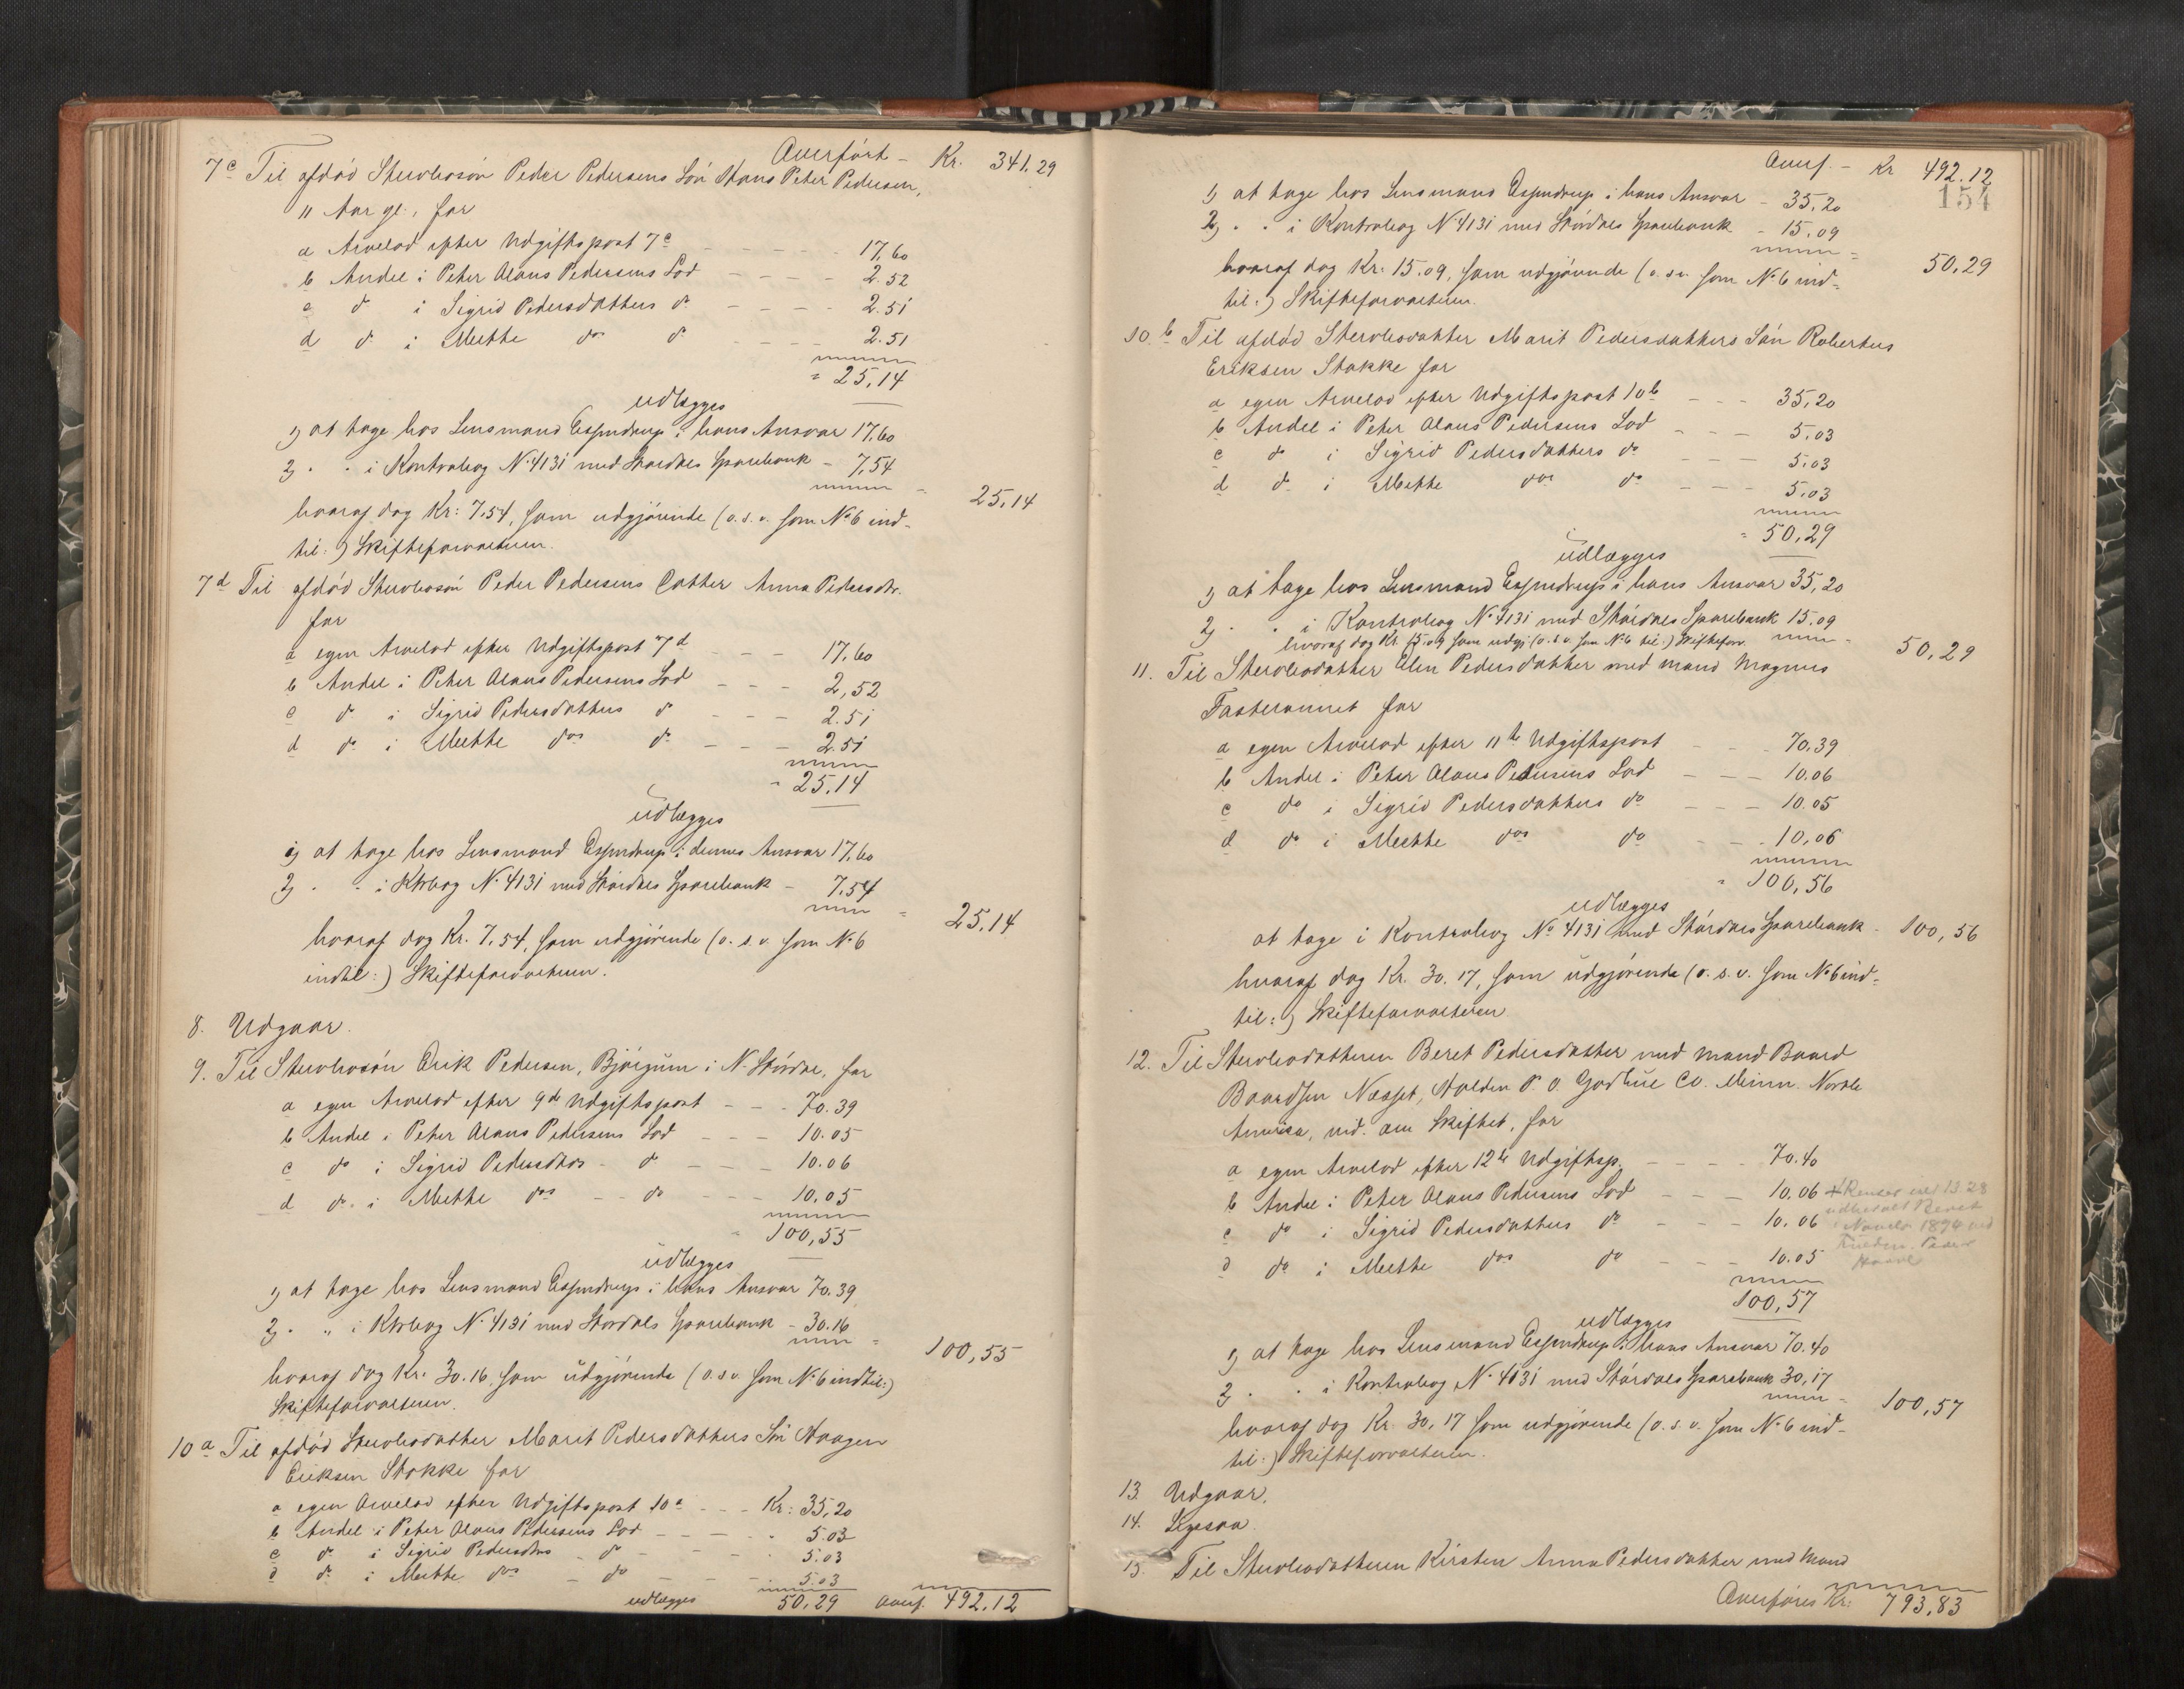 Overført - Kr. 341,29
7c Til afdød Stervbosøn Peder Pedersens Søn Hans Peter Pedersen,
11 Aar gl., for
a Arvelod efter Udgiftspost 7c - - - - 17,60
b Andel i Peter Olaus Pedersens Lod - - - - 2.52
c do i Sigrid Pedersdatters do - - - 2.51
d do i Mette do do - - - - 2.51
= 25,14
udlægges
1) at tage hos Lensmand Espendrup i hans Ansvar 17,60
2) " " i Kontrabog No 4131 med Størdals Sparebank - 7,54
= 25,14
hvoraf dog Kr: 7,54, som udgjørende (o.s.v. som No 6 ind-
til:) Skifteforvalteren.
7d Til afdød Stervbosøn Peder Pedersens Datter Anna Pedersdtr.
for
a egen Arvelod efter Udgiftspost 7d - - - 17,60
b Andel i Peter Olaus Pedersens Lod - - - 2,52
c do i Sigrid Pedersdatters do - - - 2.51
d do i Mette das do - - - 2.51
= 25,14
udlægges
1) at tage hos Lensmand Espendrup i dennes Ansvar 17,60
2) " " i Ktrbog No 4131 med Størdals Sparebank - 7,54
= 25,14
hvoraf dog Kr. 7,54, som udgjørende (o.s.v. som No 6
indtil:) Skifteforvalteren.
8. Udgaar.
9. Til Stervbosøn Erik Pedersen, Bjørgum i N. Størdal, for
a egen Arvelod efter 9de Udgiftspost - - - 70.39
b Andel i Peter Olaus Pedersens Lod - - - 10.05
c do i Sigrid Pedersdtrs - do - - - 10.06
d do i Mette das - - do - - - 10,05
= 100,55
udlægges
1) at tage hos Lensmand Espendrup i hans Ansvar 70.39
2) " " i Ktrbog No 4131 med Størdals Sparebank - 30.16
= 100,55
hvoraf dog Kr. 30.16, som udgjørende (o.s.v. som No 6 indtil:)
Skifteforvalteren.
10a Til afdød Stervbodatter Marit Pedersdatters Søn Haagen
Eriksen Stokke for
a egen Arvelod efter Udgiftspost 10a - - - Kr: 35,20
b Andel i Peter Olaus Pedersens Lod - - - - " 5.03
c do i Sigrid Pedersdtrs do - - - " 5.03
d do i Mette das - do - - - 5.03
udlægges 50,29 Overf. 492.12
Overf. - Kr 492.12
154
1) at tage hos Lensmand Espendrup i hans Ansvar - 35,20
2) " " i Kontrabog No 4131 med Størdals Sparebank - 15.09
= 50,29
hvoraf dog Kr. 15.09, som udgjørende (o.s.v. som No 6 ind-
til:) Skifteforvalteren.
10.b Til afdød Stervbodatter Marit Pedersdatters Søn Robertus
Eriksen Stokke for
a egen Arvelod efter Udgiftspost 10b - - - 35,20
b Andel i Peter Olaus Pedersens Lod - - - 5.03
c do i Sigrid Pedersdatters do - - - 5.03
d do i Mette das do - - - 5.03
= 50,29
udlægges
1) at tage hos Lensmand Espendrup i hans Ansvar 35,20
2) " " i Kontrabog No 4131 med Størdals Sparebank 15.09
hvoraf dog Kr. 15.09 som udgj. (o.s.v. som No 6 til:) Skifteforv. = 50,29
11. Til Stervbodatter Elen Pedersdatter med Mand Magnus
Fasteraunet for
a egen Arvelod efter 11te Udgiftspost - - - 70,39
b Andel i Peter Olaus Pedersens Lod - - - 10.06
c do i Sigrid Pedersdatters do - - - 10.05
d do i Mette das do - - - 10,06
= 100,56
udlægges
at tage i Kontrabog No 4131 med Størdals Sparebank - 100,56
hvoraf dog Kr. 30.17, som udgjørende (o.s.v. som No 6 ind-
til:) Skifteforvalteren
12. Til Stervbodatteren Beret Pedersdatter med Mand Baard
Baardsen Næsset, Holden P.O. Godhue Co. Minn. North
America, vid. om Skiftet, for
a egen Arvelod efter 12te Udgiftsp. - - - - 70.40
b Andel i Peter Olaus Pedersens Lod - - - 10.06
c do i Sigrid Pedersdatters do - - - 10.06
d do i Mette das do - - - 10.05
100,57
udlægges
1) at tage hos Lensmand Espendrup i hans Ansvar 70.40
2) " " i Kontrabog No 4131 med Størdals Sparebank 30,17
= 100,57
hvoraf dog Kr. 30,17 som udgjørende (o.s.v. som No 6 ind-
til:) Skifteforvalteren.
13. Udgaar.
14. Ligesaa.
15. Til Stervbodatteren Kirsten Anna Pedersdatter med Mand
Overføres Kr: 793,83